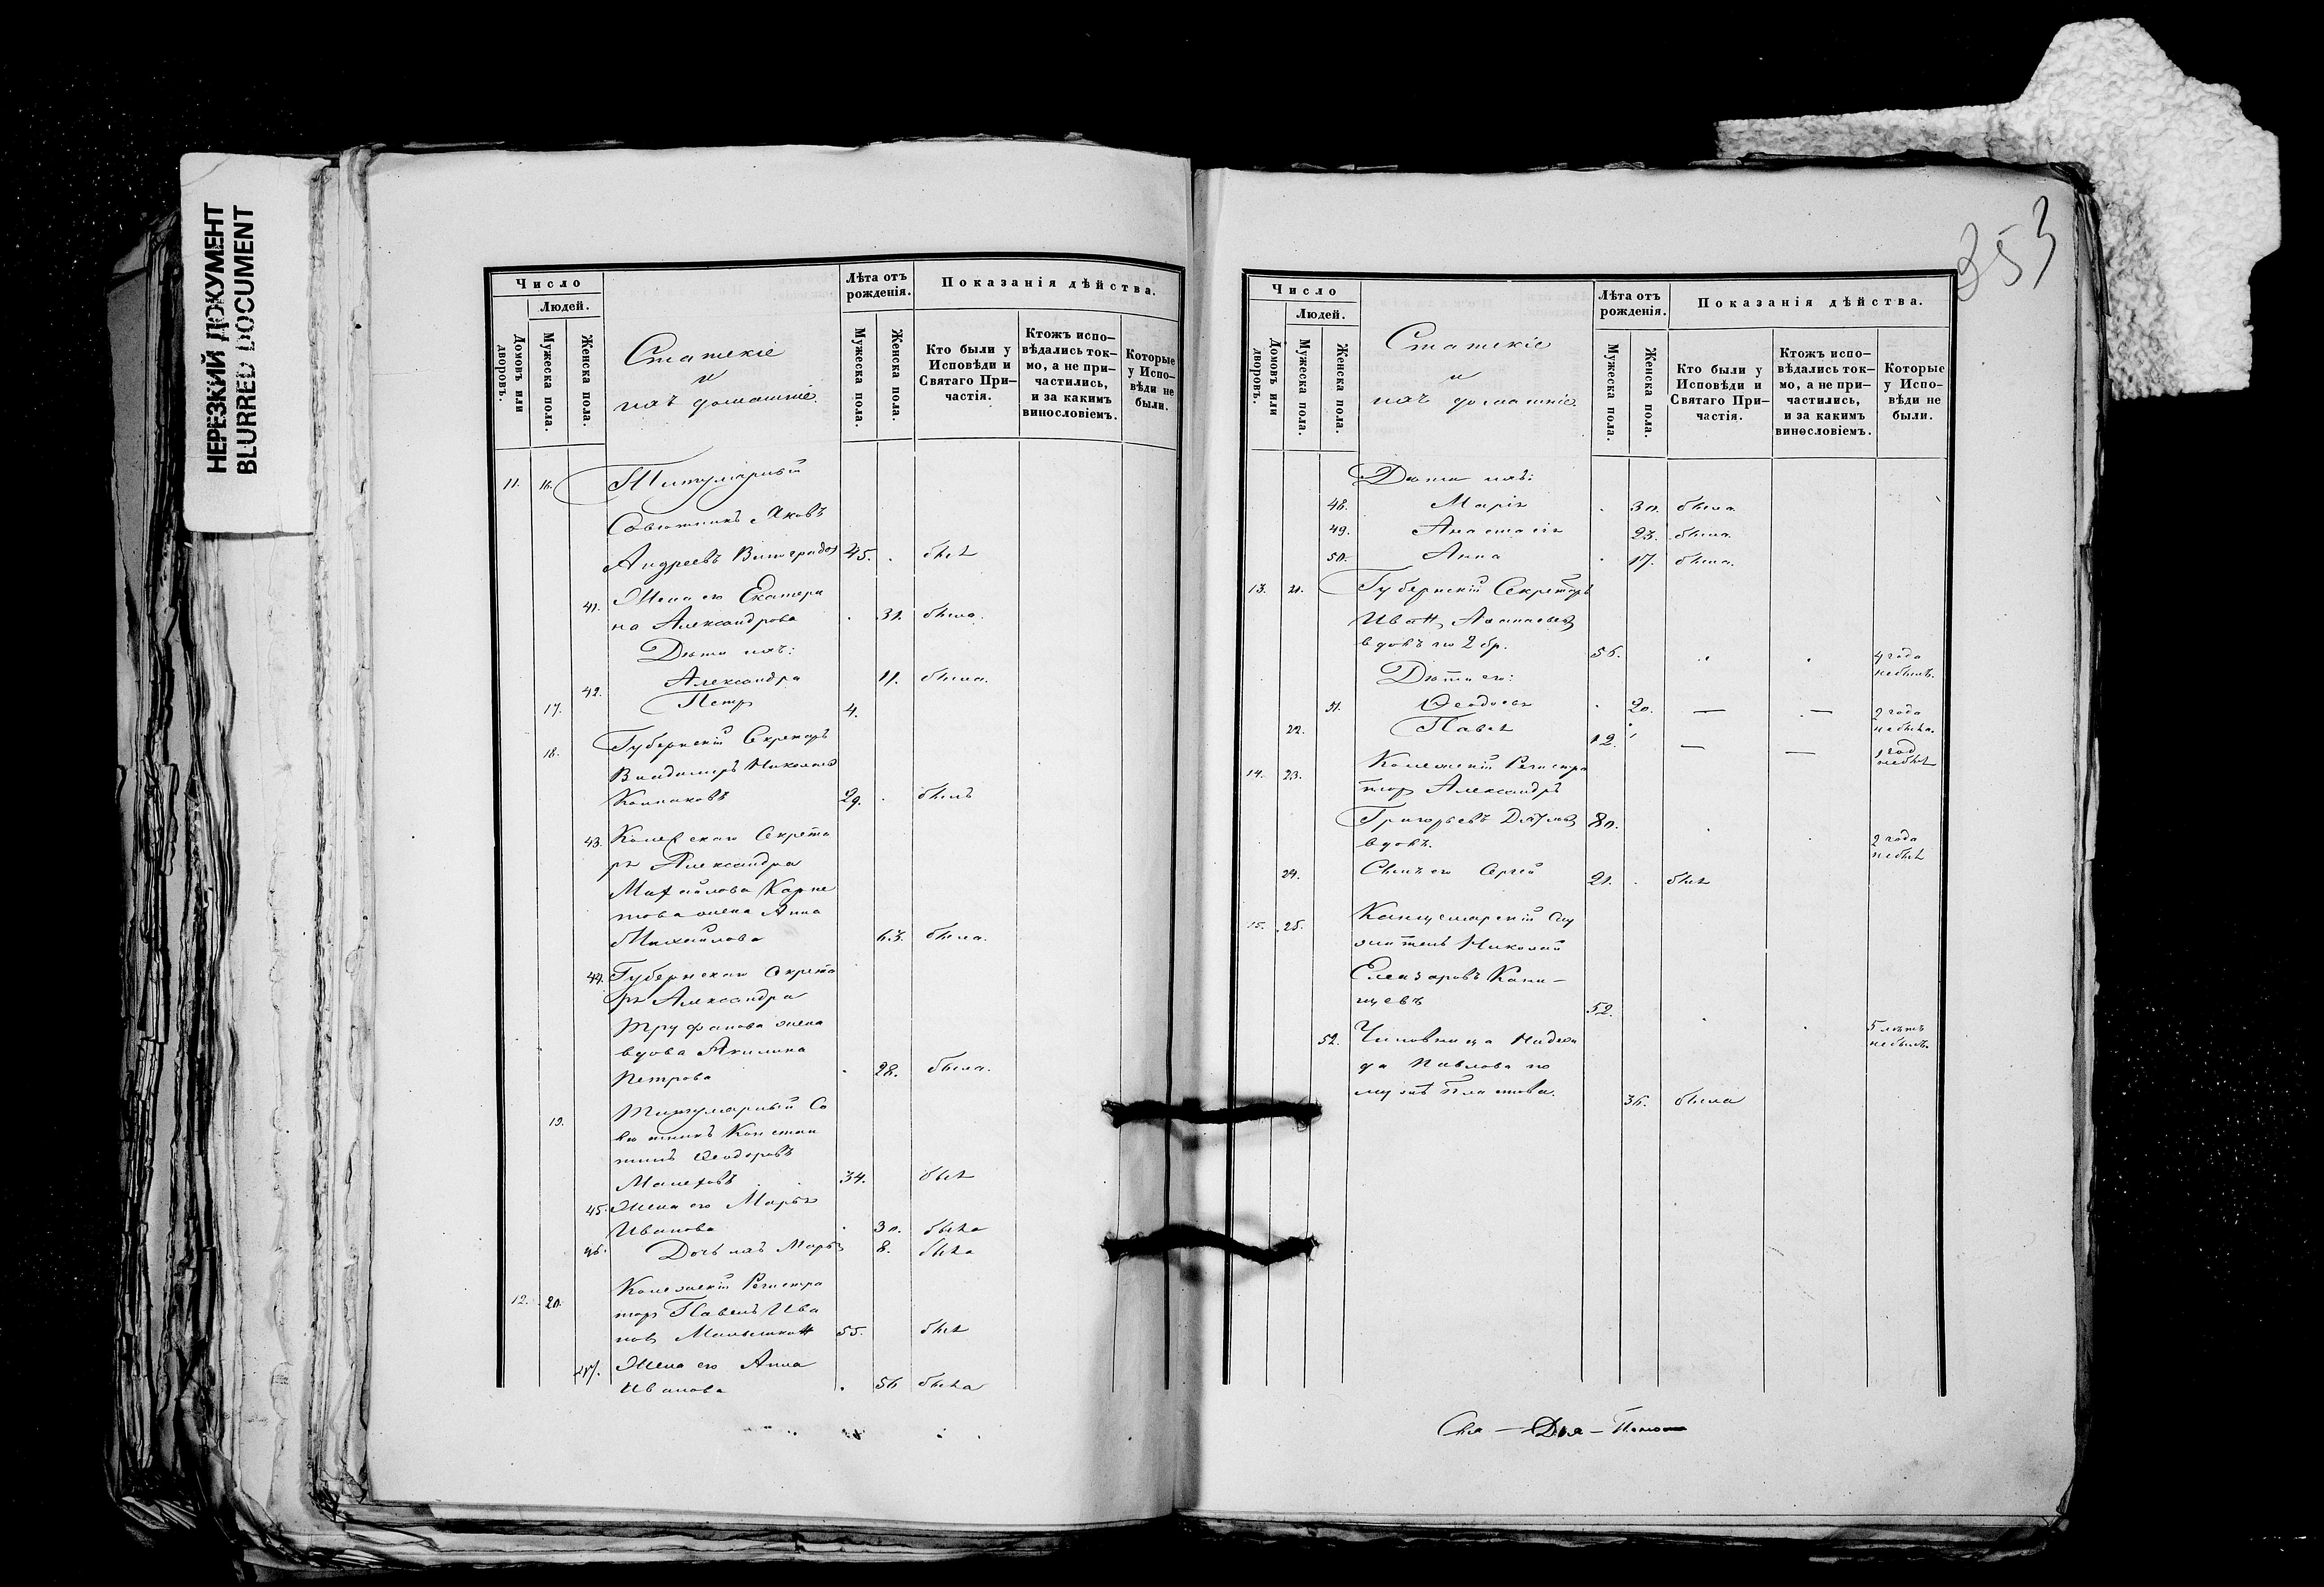 НЕРЕЗКИЙ ДОКУМЕНТ
BLURRED DOCUMENT
Число
Людей.
Домовъ или дворовъ.
Мужеска пола.
Женска пола.
Статскіе
и
ихъ домашніе.
Лѣта отъ рожденія.
Мужеска пола.
Женска пола.
Показанія дѣйства.
Кто были у Исповѣди и Святаго При-частія.
Ктожъ испо-вѣдались ток-мо, а не при-частились, и за какимъ винословіемъ.
Которые у Испо-вѣди не были.
11. 16. Титулярный
Совѣтникъ Яковъ
Андреевъ Виноградов 45. былъ
41. Жена его Екатери
на Александрова 31. была.
Дѣти ихъ:
42. Александра 11. была.
17. Петръ 4.
18. Губернскій Секретарь
Владимиръ Николаев
29. былъ
43. Секрета
ря Александра
Михайлова
жена Анна
Михайлова 63. была.
44. Губернскаго Секрета
ря Александра
Труфанова жена
вдова Акилина
Петрова 22. была.
19. Титулярный Со
вѣтникъ Констан
тинъ Ѳеодоровъ
34. былъ
45. Жена его Марья
Иванова 30. была
46. Дочь ихъ Марья 8. была
12. 20. Колежскій Регистра
торъ Павелъ Ива
новъ 55. былъ
47. Жена его Анна
Иванова 56 была
353
Число
Людей.
Домовъ или дворовъ.
Мужеска пола.
Женска пола.
Статскіе
и
ихъ домашніе.
Лѣта отъ рожденія.
Мужеска пола.
Женска пола.
Показанія дѣйства.
Кто были у Исповѣди и Святаго При-частія.
Ктожъ испо-вѣдались ток-мо, а не при-частились, и за какимъ винословіемъ.
Которые у Испо-вѣди не были.
Дѣти ихъ:
48. Марія 30. была
49. Анастасія 23. была
50. Анна 17. была.
13. 21. Губернскій Секретарь
Иванъ
вдовъ по 2 бр. 56. 4 года
небылъ.
Дѣти его:
51. Ѳеодосья 20. — — 2 года
небыла.
22. Павелъ 12. — — 1 год
небылъ
14. 23. Колежскій Регистра
торъ Александръ
Григорьевъ 80.
вдовъ. 2 года
небылъ
24. Сынъ его Сергей 21. былъ
15. 25. Канцелярскій Слу
житель Николай
Елеазаровъ Капи-
щевъ 52.
5 лѣтъ
небылъ.
52. Чиновница Надеж
да Павлова по
мужѣ 36. была